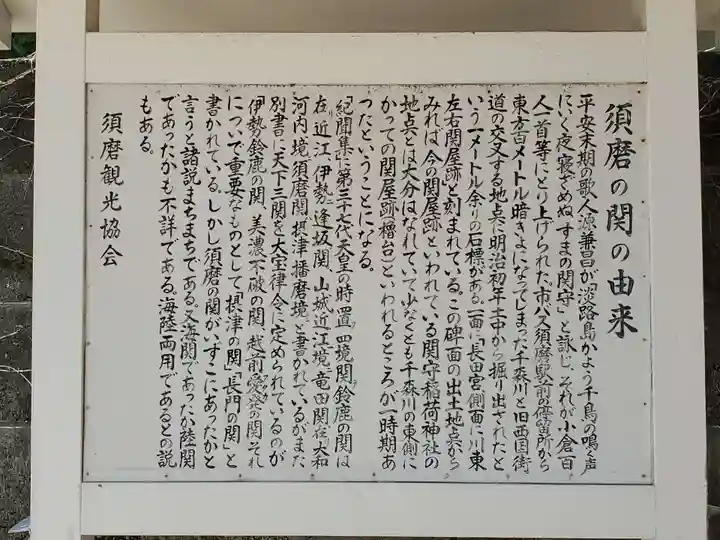 須磨の関の由来
平安末期の歌人源兼昌が「淡路島かよう千鳥の鳴く声
にいく夜寝ざめぬすまの関守」と詠じ、それが小倉百
人一首等にとり上げられた。市バス須磨駅前の停留所から
東方百メートル暗きよになってしまった千森川と旧西国街
道の交叉する地点に明治初年土中から掘り出されたと
いう一メートル余りの石標がある。一面に「長田宮」側面に「川東
左右関屋跡」と刻まれている。この碑面の出土地点から
みれば、今の関屋跡といわれている関守稲荷神社の
地点とは大分はなれていて少なくとも千森川の東側に
かつての関屋跡(櫓台)といわれるところが一時期あ
ったということになる。
紀聞集に「第三十七代天皇の時置、四境関、鈴鹿の関は
在、近江、伊勢、逢坂関、山城近江境、竜田関在、大和
河内境、須磨関、摂津播磨境」と書かれているがまた
別書に天下三関を大宝律令に定められているのが
伊勢鈴鹿の関、美濃不破の関、越前愛発の関それ
についで重要なものとして「摂津の関」「長門の関」と
書かれている。しかし須磨の関がいずこにあったかと
言うと諸説まちまちである。又海関であったか陸関
であったかも不詳である。海陸両用であるとの説
もある。
須磨観光協会